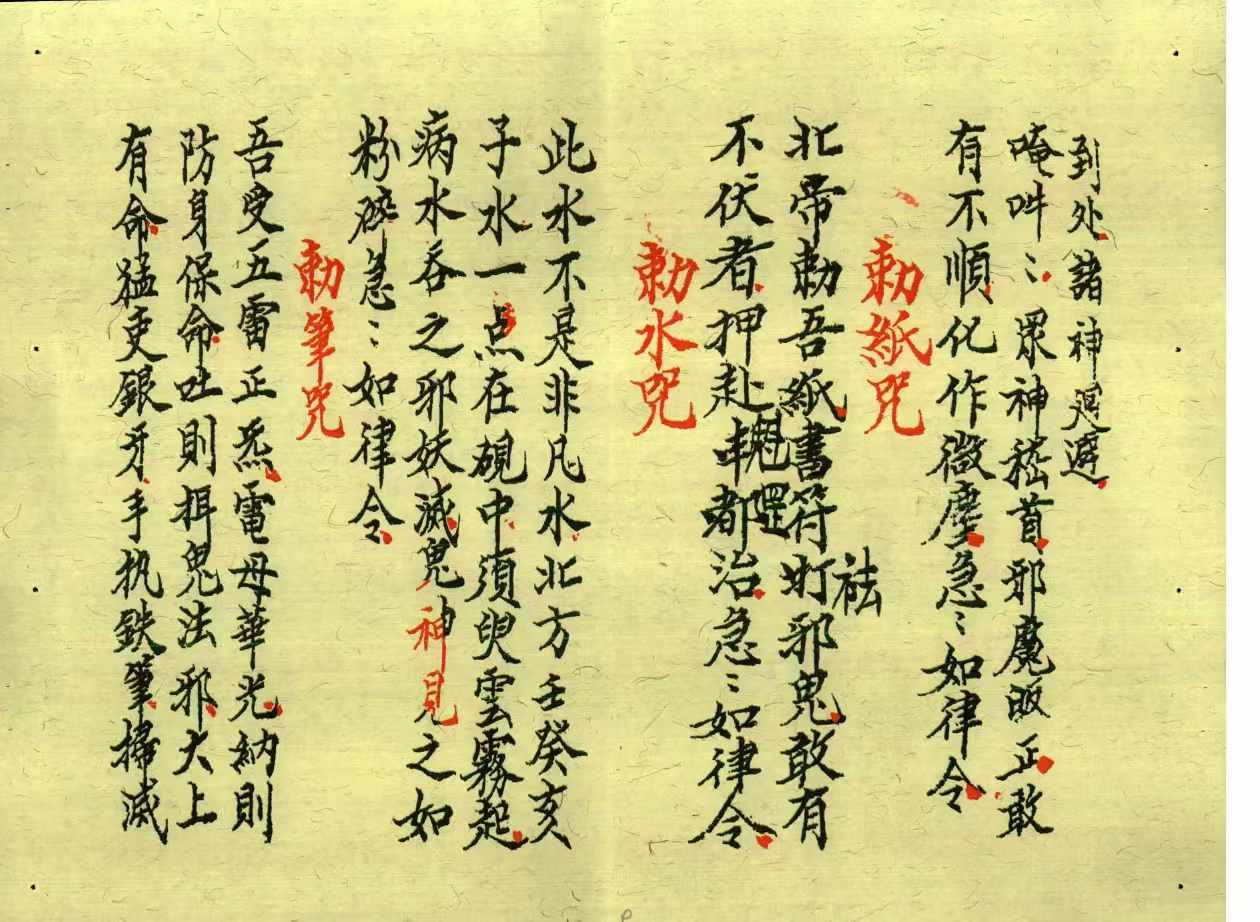 到处諸神迴避
唵吽⺀眾神嵇首邪魔皈正敢
有不順化作微塵急⺀如律令
勅紙咒
北帝勅吾紙書符打邪鬼敢有
祛
不伏者押赴都治急⺀如律令
魁罡
勅水咒
此水不是非凡水北方壬癸亥
子水一点在硯中須臾雲霧起
病水吞之邪妖滅鬼神見之如
粉碎急⺀如律令
勅筆咒
吾受五雷正炁電母華光納則
防身保命吐則捐鬼法邪大上
有命猛吏銀牙手执鉄筆掃滅